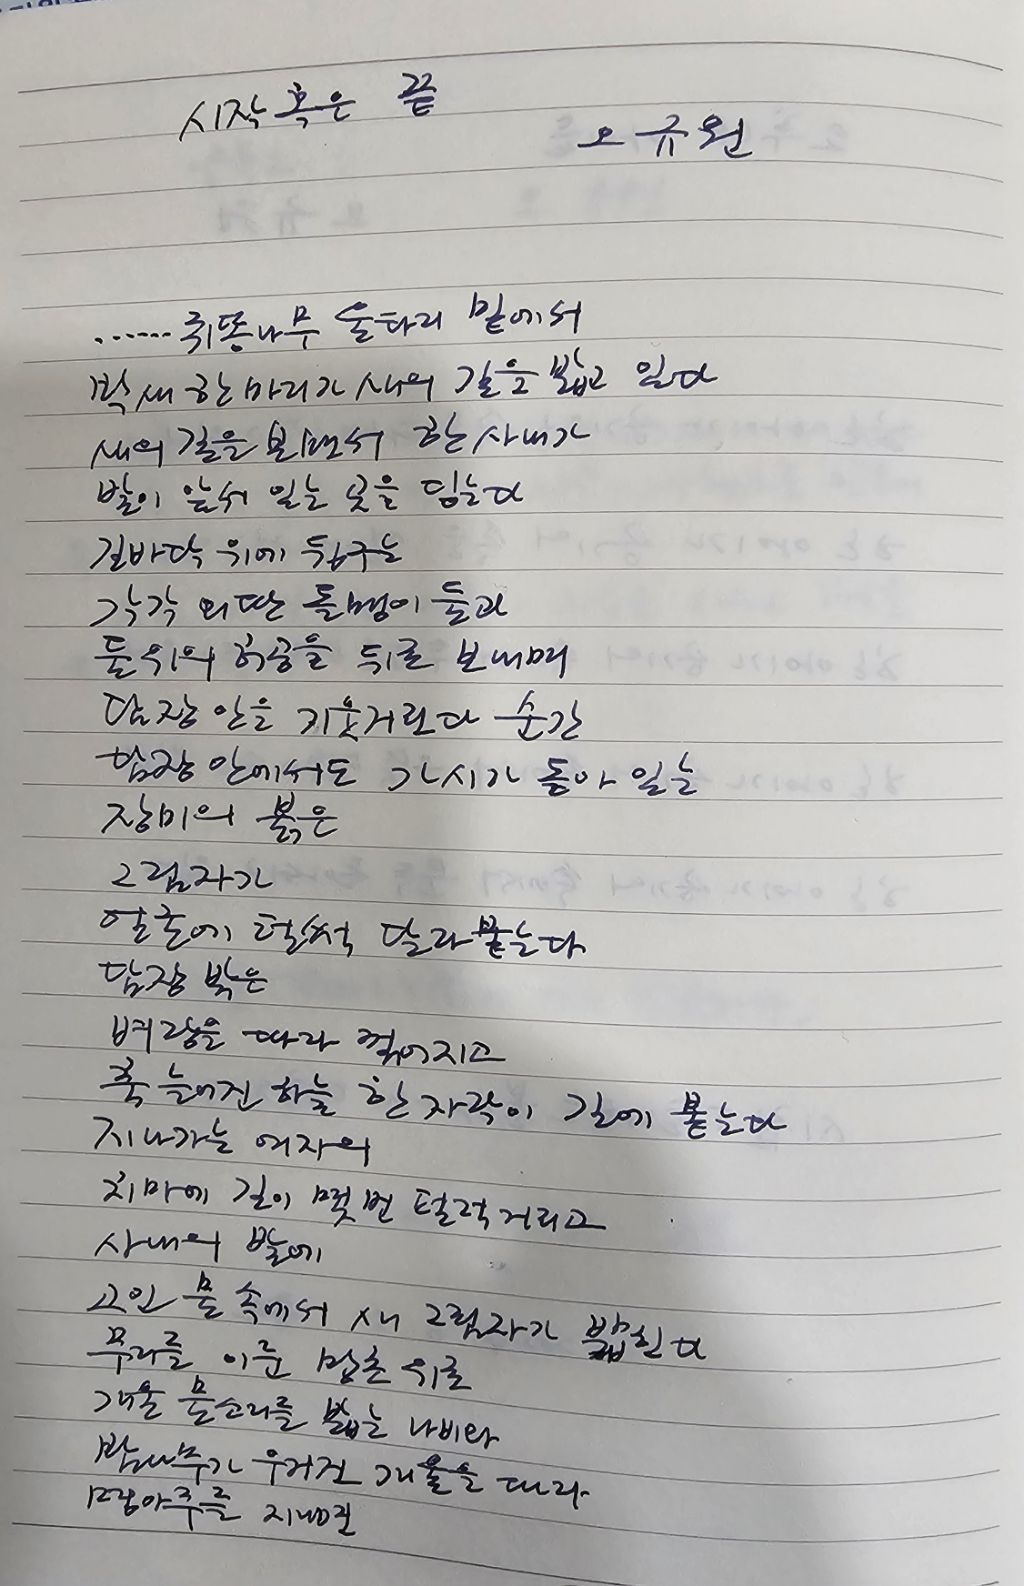 시작 혹은 끝
오규원
......쥐똥나무 울타리 밑에서
박새 한 마리가 새의 길을 밟고 있다
새의 길을 보면서 한 사내가
발이 앞서 있는 곳을 딛는다
길바닥 위에 뒹구는
각각 외딴 돌멩이 둘과
둘 위의 허공을 뒤로 보내며
담장 안을 기웃거린다 순간
담장 안에서도 가시가 돋아 있는
장미의 붉은
그림자가
얼굴에 털썩 달라붙는다
담장 밖은
벼랑을 따라 꺾어지고
축 늘어진 하늘 한 자락이 길에 붙는다
지나가는 여자의
치마에 길이 몇 번 털럭거리고
사내의 발에
고인 물 속에서 새 그림자가 밟힌다
무리를 이룬 망초 위로
개울 물소리를 밟는 나비와
밤나무가 우거진 개울을 따라
명아주를 지나면